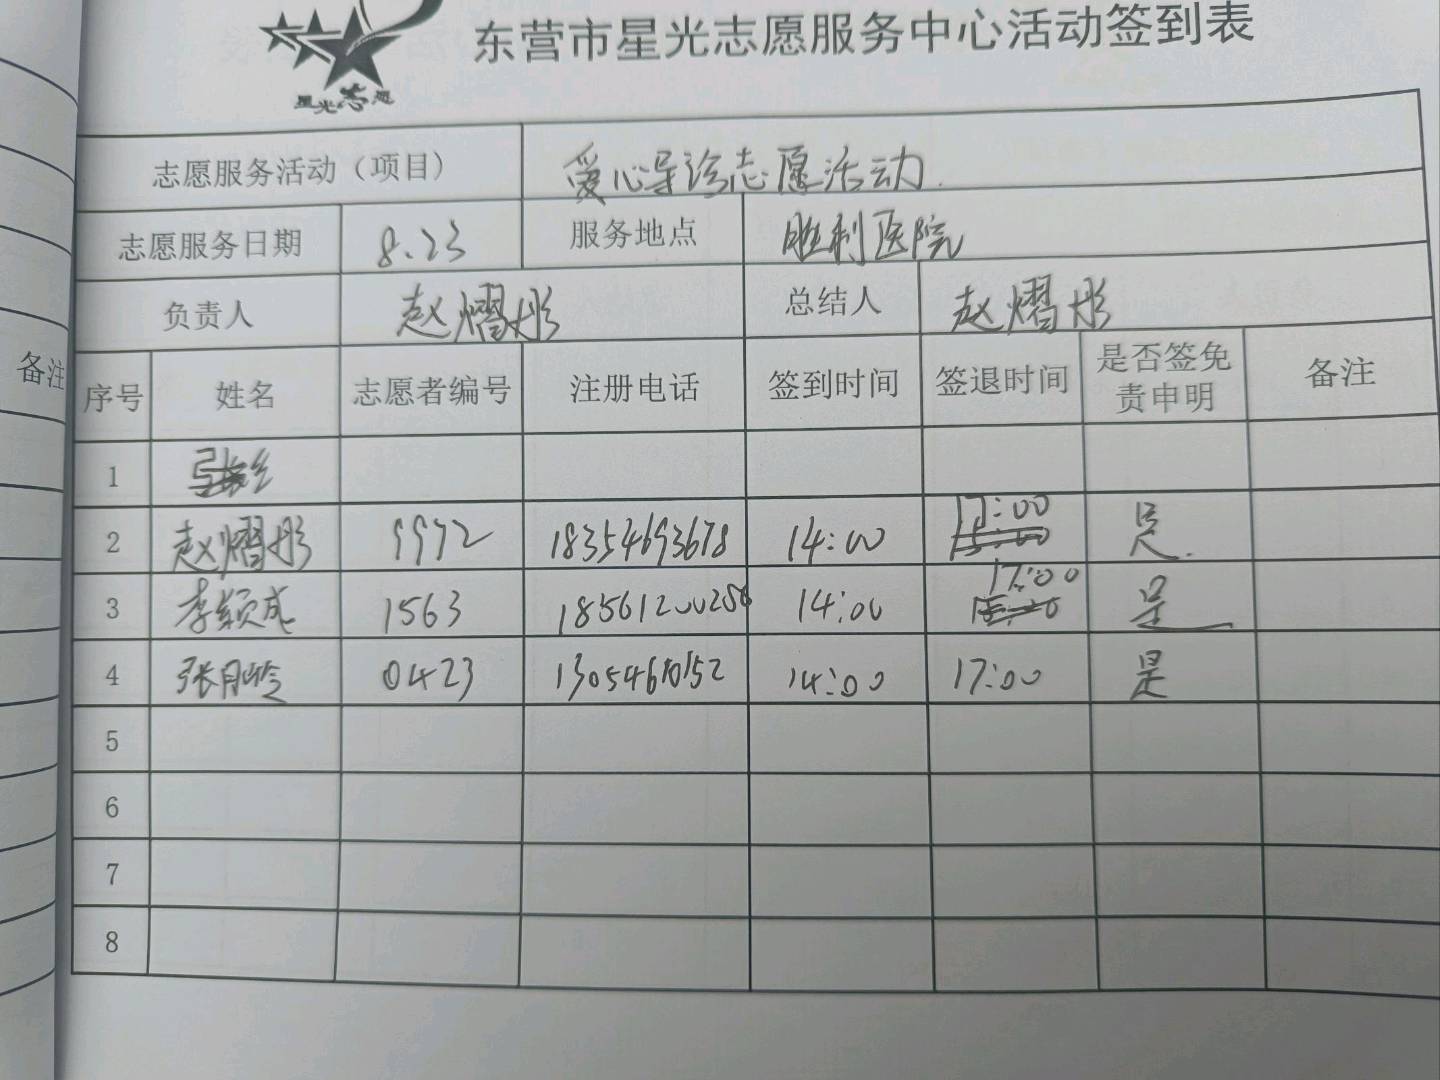 星光志愿
东营市星光志愿服务中心活动签到表
志愿服务活动（项目） 爱心导诊志愿活动.
志愿服务日期 8.23 服务地点 胜利医院
负责人 赵熠彤 总结人 赵熠彤
备注
序号 姓名 志愿者编号 注册电话 签到时间 签退时间 是否签免责申明 备注
1
2 赵熠彤 9972 18354693678 14:00 17:00 是.
3 李颖成 1563 18561200256 14:00 17:00 是
4 张月玲 0423 13054610152 14:00 17:00 是
5
6
7
8